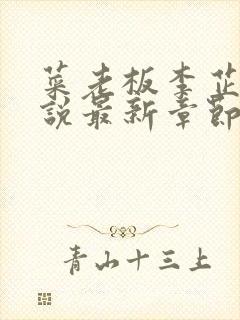 菜老板李芷
说最新章节
青山十三上